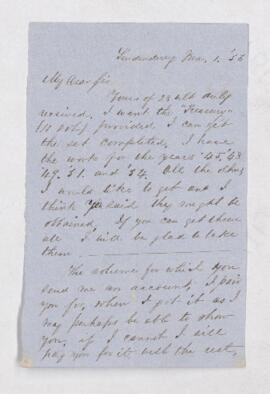 Londonderry Mar. 1. '56
My dear Sir
Yours of 28 ult duly
received. I want the "Treasury"
(10 vols) provided I can get
the set completed. I have
the works for the years '45, '48
'49. 51. and '54. All the others
I would like to get and I
think you said they might be
obtained. If you can get them
all I will be glad to take
them —
The volume for which you
send me an account, I paid
you for, when I got it as I
may perhaps be able to show
you, if I cannot I will
pay you for it with the rest,